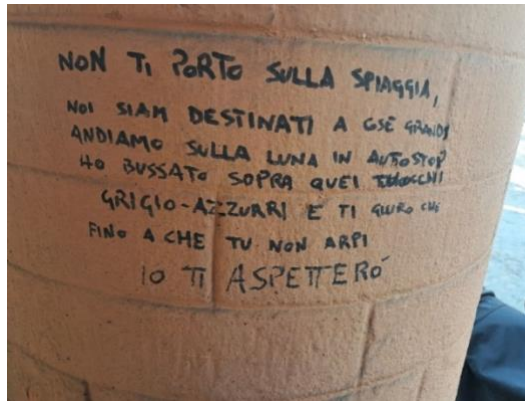 NON TI PORTO SULLA SPIAGGIA,
NOI SIAM DESTINATI A COSE GRANDI
ANDIAMO SULLA LUNA IN AUTOSTOP
HO BUSSATO SOPRA QUEI OCCHI
GRIGIO-AZZURRI E TI GIURO CHE
FINO A CHE TU NON ARPI
IO TI ASPETTERÓ